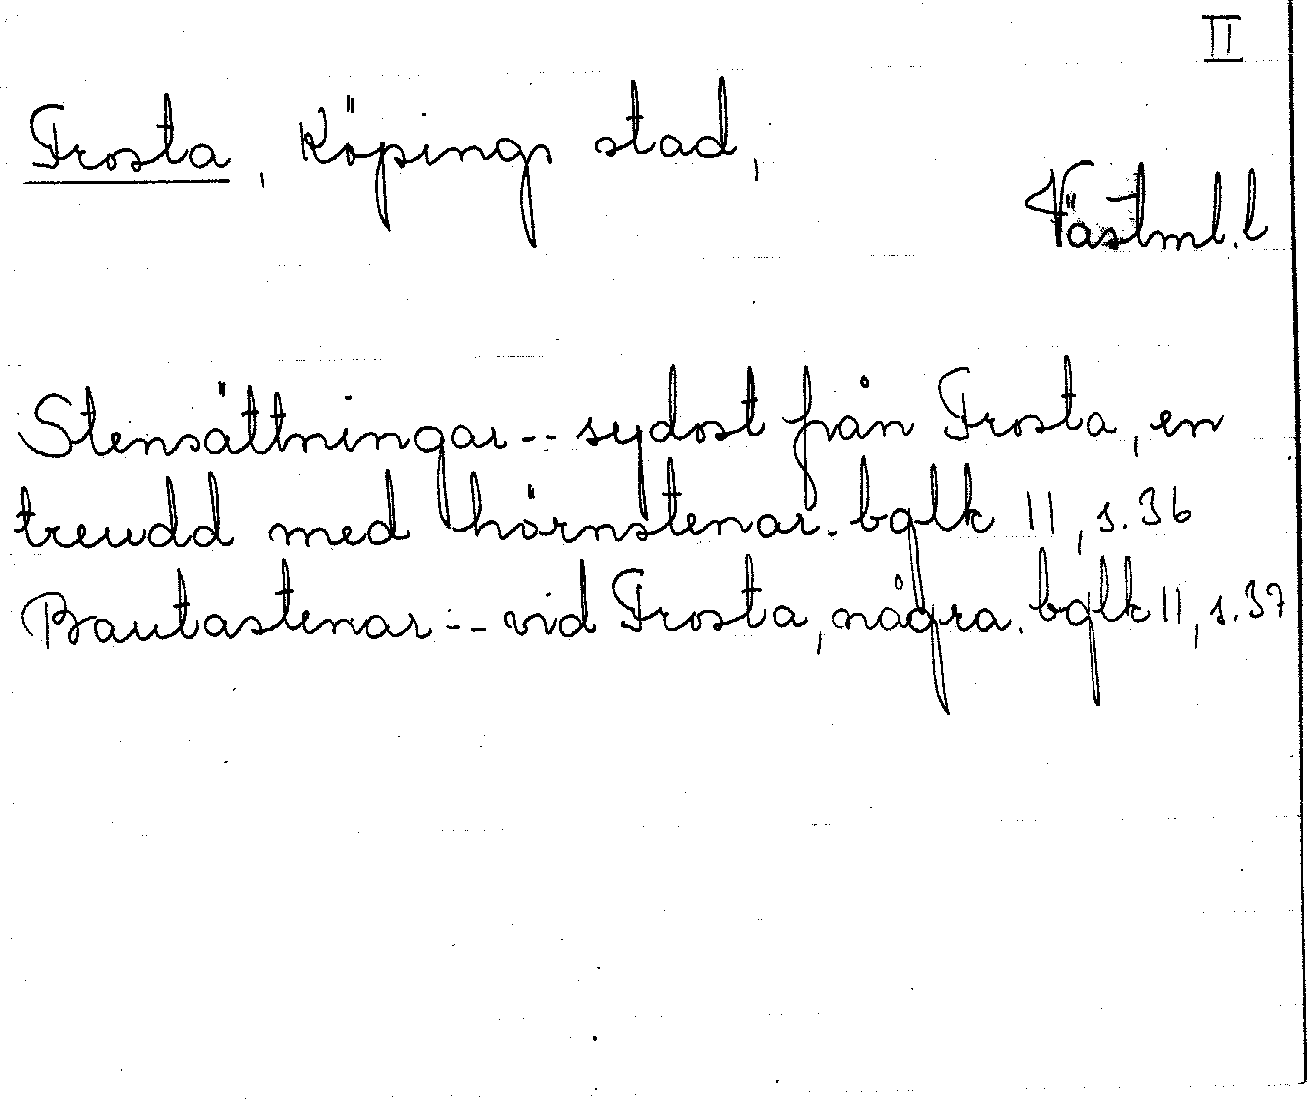 II
Frosta, Köpings stad,
Västml. l
Stensättningar -- sydost från Frosta, en
treudd med hörnstenar. bglk II, s. 36
Bautastenar -- vid Frosta, några. bglk II, s. 37